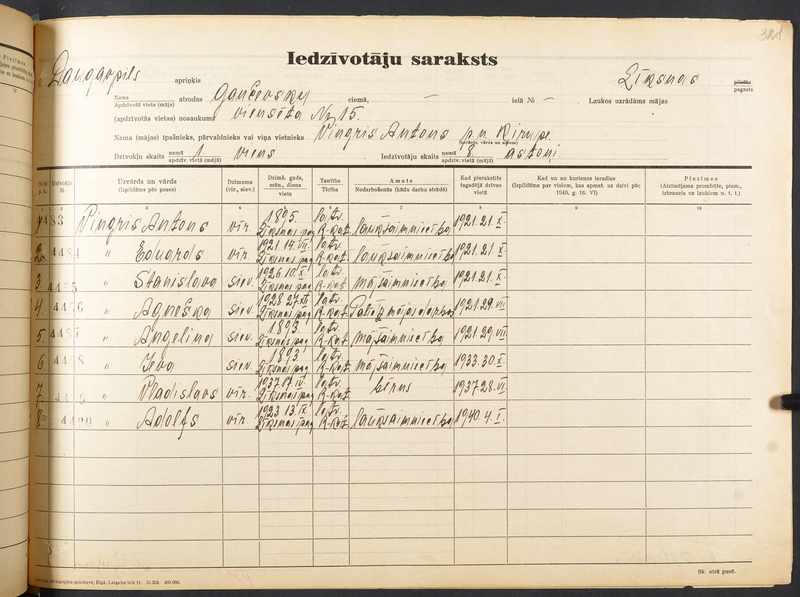 321
Iedzīvotāju saraksts
Daugavpils apriņķis Līksnas pilsētā pagasts
Nams Apdzīvotā vieta (māja) atrodas Gančevsku ciemā, — ielā № — Laukos uzrādāms mājas
(apdzīvotās vietas) nosaukums viensēta Nr 15.
Nama (mājas) īpašnieks, pārvaldnieks vai viņa vietnieks Vingris Antons p.n.
(Uzvārds, vārds un adrese)
Dzīvokļu skaits namā apdzīv. vietā (mājā) 1 viens Iedzīvotāju skaits namā apdzīv. vietā (mājā) 8 astoņi
Dzīvokļa № Uzvārds un vārds (Izpildāms pēc pases) Dzimums (vīr., siev.) Dzimš. gads, mēn., diena vieta Tautība Ticība Amats Nodarbošanās (kādu darbu strādā) Kad pierakstīts tagadējā dzīves vietā Kad un no kurienes ieradies (Izpildāms par visiem, kas apmet. uz dzīvi pēc 1940. g. 16. VI) Piezīmes (Atzīmējams prombūtne, piem., izbraucis uz laukiem u. t. t.)
1 Vingris Antons vīr. 1895. Līksnas pag. latv. R-kat. lauksaimniecība 1921.21.X.
2 4484 " Eduards vīr. 1921.14.VII. Līksnas pag. latv. R-kat. lauksaimniecība 1921.21.X.
3 4485 " Staņislava siev. 1926.10.X. Līksnas pag. latv. R-kat. mājsaimniecība 1921.21.X.
4 4486 " Agneška siev. 1928.27.XII. Līksnas pag. latv. R-kat. 1921.29.VII.
5 4487 " Angelina siev. 1893. Līksnas pag. latv. R-kat. mājsaimniecība 1921.29.VII.
6 4488 " Ieva siev. 1893. Līksnas pag. latv. R-kat. mājsaimniecība 1933.30.X.
7 " Vladislavs vīr. 1937.17.IV. Līksnas pag. latv. R-kat. bērns 1937.28.VI.
8 " Adolfs vīr. 1923.13.IX. Līksnas pag. latv. R-kat. lauksaimniecība 1940.4.I.
Sk. otrā pusē.